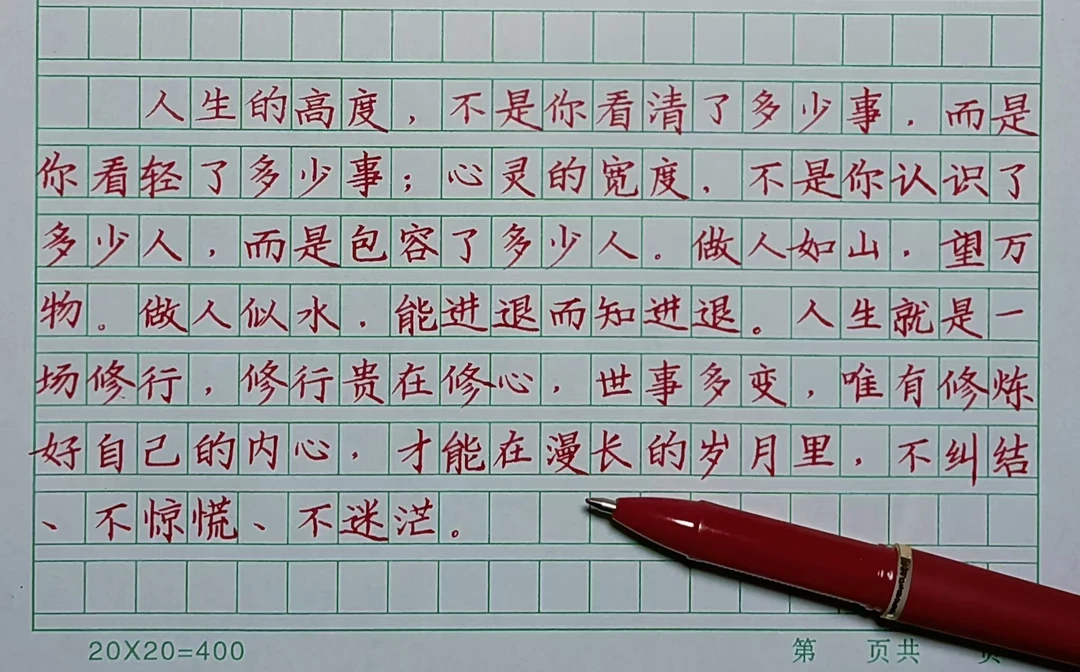 人生的高度，不是你看清了多少事，而是
你看轻了多少事；心灵的宽度，不是你认识了
多少人，而是包容了多少人。做人如山，望万
物。做人似水，能进退而知进退。人生就是一
场修行，修行贵在修心，世事多变，唯有修炼
好自己的内心，才能在漫长的岁月里，不纠结
、不惊慌、不迷茫。
20X20=400 第 页共 页